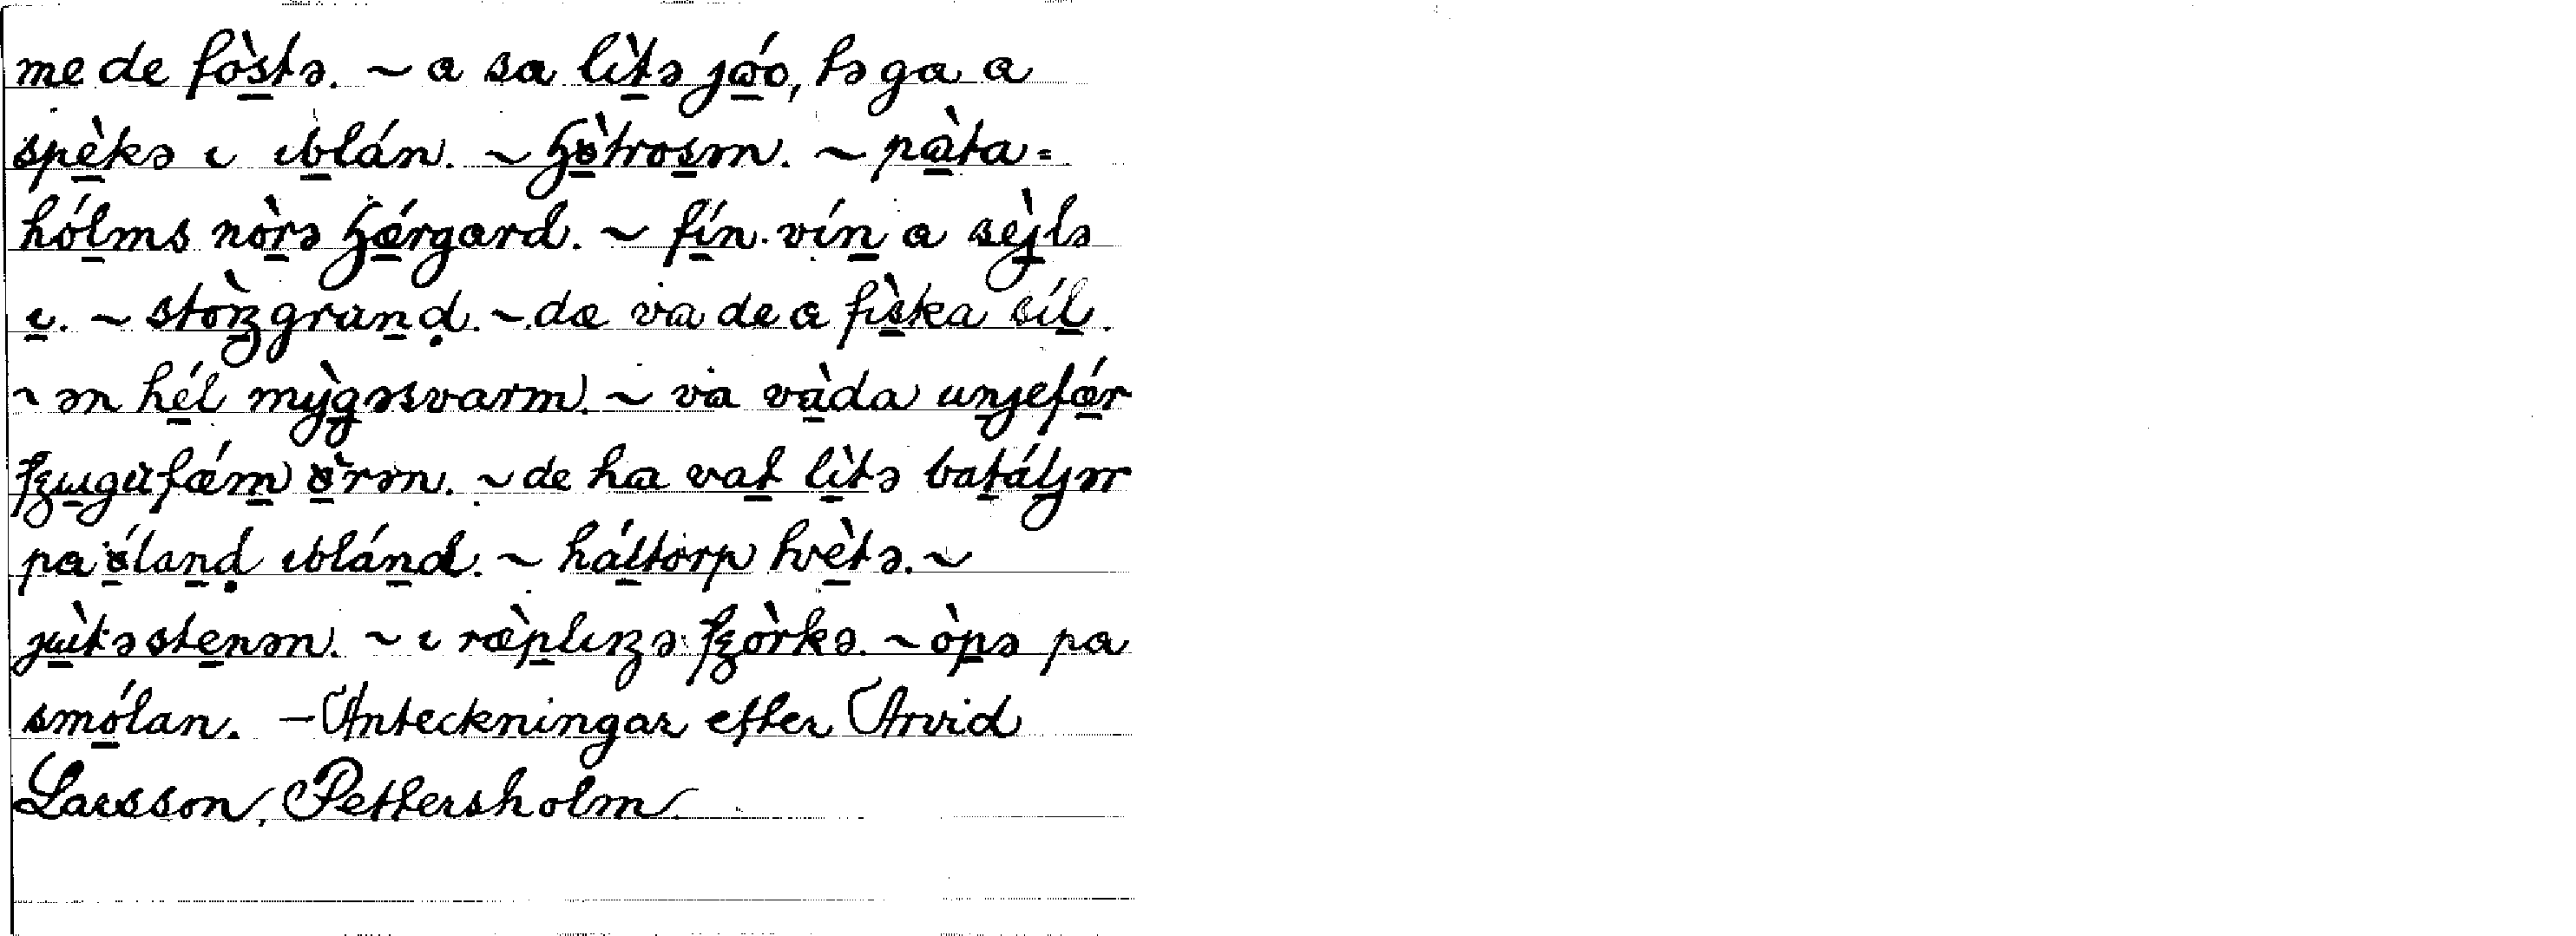 me de fòs̲tə. ~ a sa lìt̲ə jώ̲o, tə ga a
spè̲kə ɩ ɩb̲lán. ~ ɧö̲̀tros̲ən. ~ pà̲ta=
hól̲ms nòr̲ə ɧǽ̲rgard. ~ fí̲n vín̲ a sèj̲lə
ɩ̲. ~ stòʀ̲ʒgrun̲ḍ. ~ dæ va de a fìs̲ka síl̲.
~ ən hé̲l mỳg̲əsvarm. ~ va và̲da un̲jefǽ̲r
ꞎɯ̲gufǽm̲ ö̲̀rən. ~ de ha vat̲ lì̲tə bat̲ál̲jər
pa ö̲́lan̲ḍ ɩblán̲d. ~ hál̲torp hvè̲tə. ~
jɯ̲̀təste̲nən. ~ ɩ ræ̀p̲lɩŋə ꞎòrkə. ~ òp̲ə pa
smó̲lan. – Anteckningar efter Arvid
Larsson, Pettersholm.